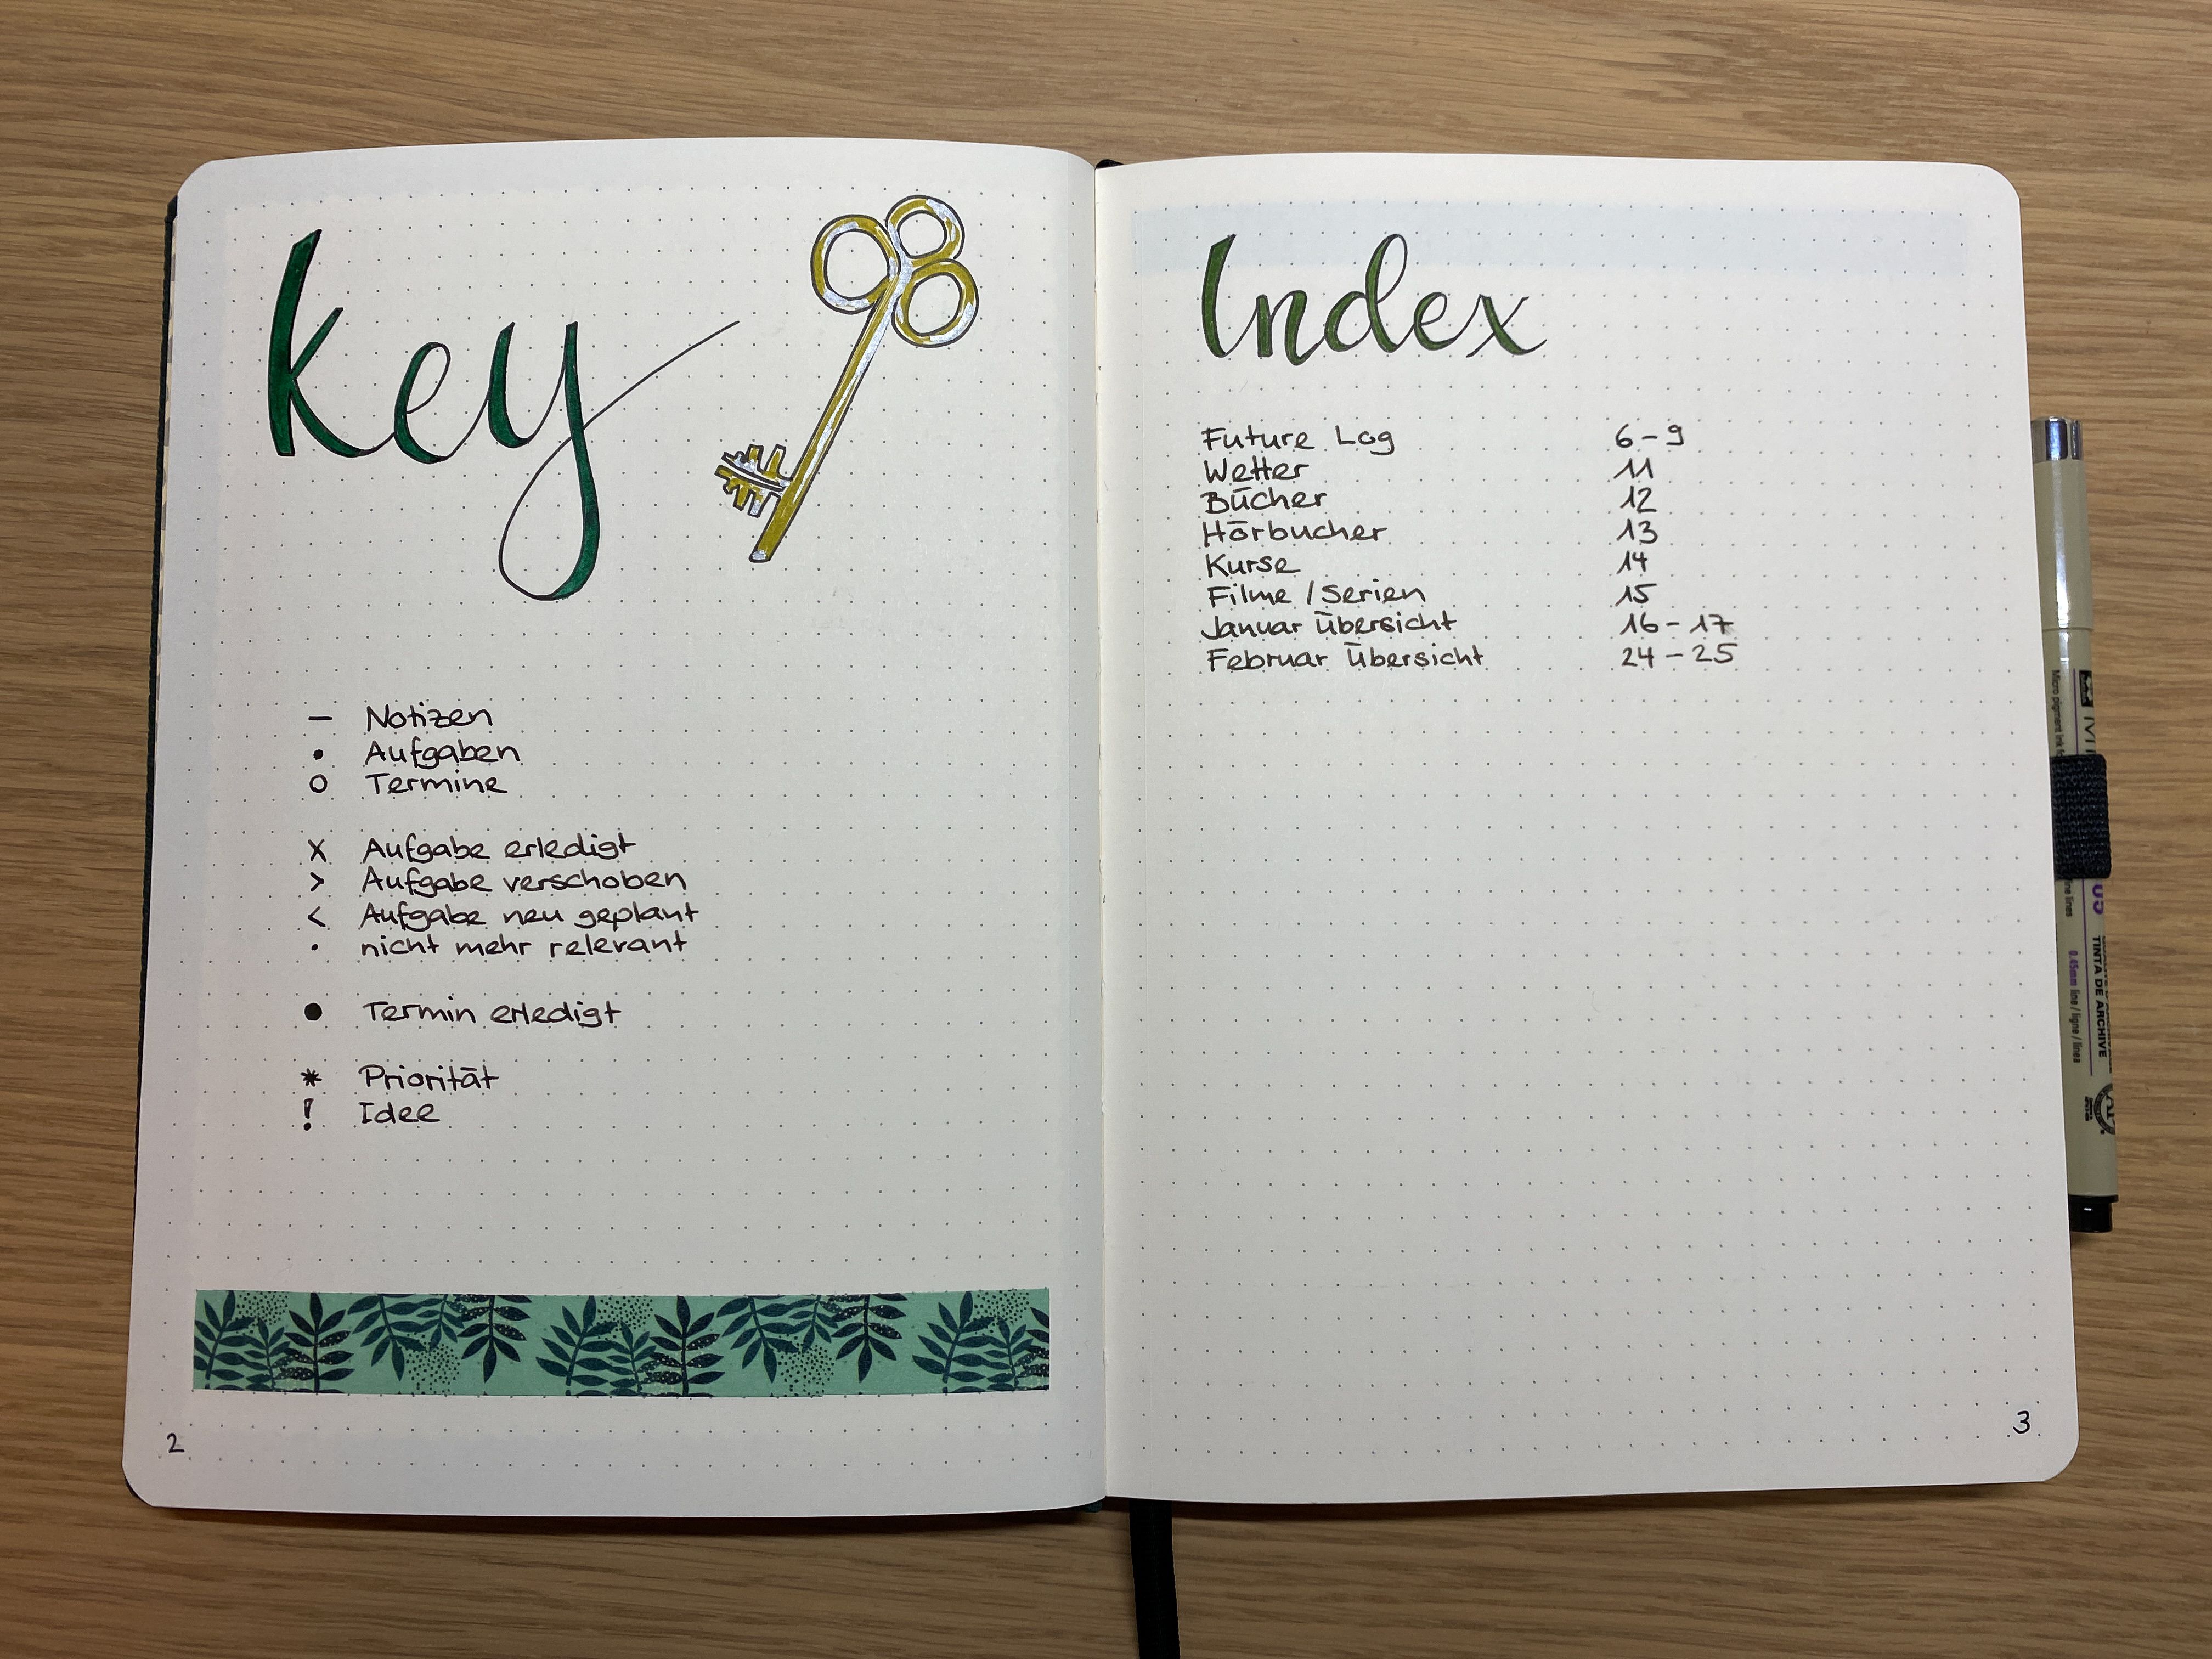 key
— Notizen
• Aufgaben
o Termine
x Aufgabe erledigt
> Aufgabe verschoben
< Aufgabe neu geplant
· nicht mehr relevant
● Termin erledigt
* Priorität
! Idee
2
Index
Future Log 6-9
Wetter 11
Bücher 12
Hörbucher 13
Kurse 14
Filme / Serien 15
Januar Übersicht 16-17
Februar Übersicht 24-25
3
05
TINTA DE ARCHIVE
0.45mm line / ligne / línea